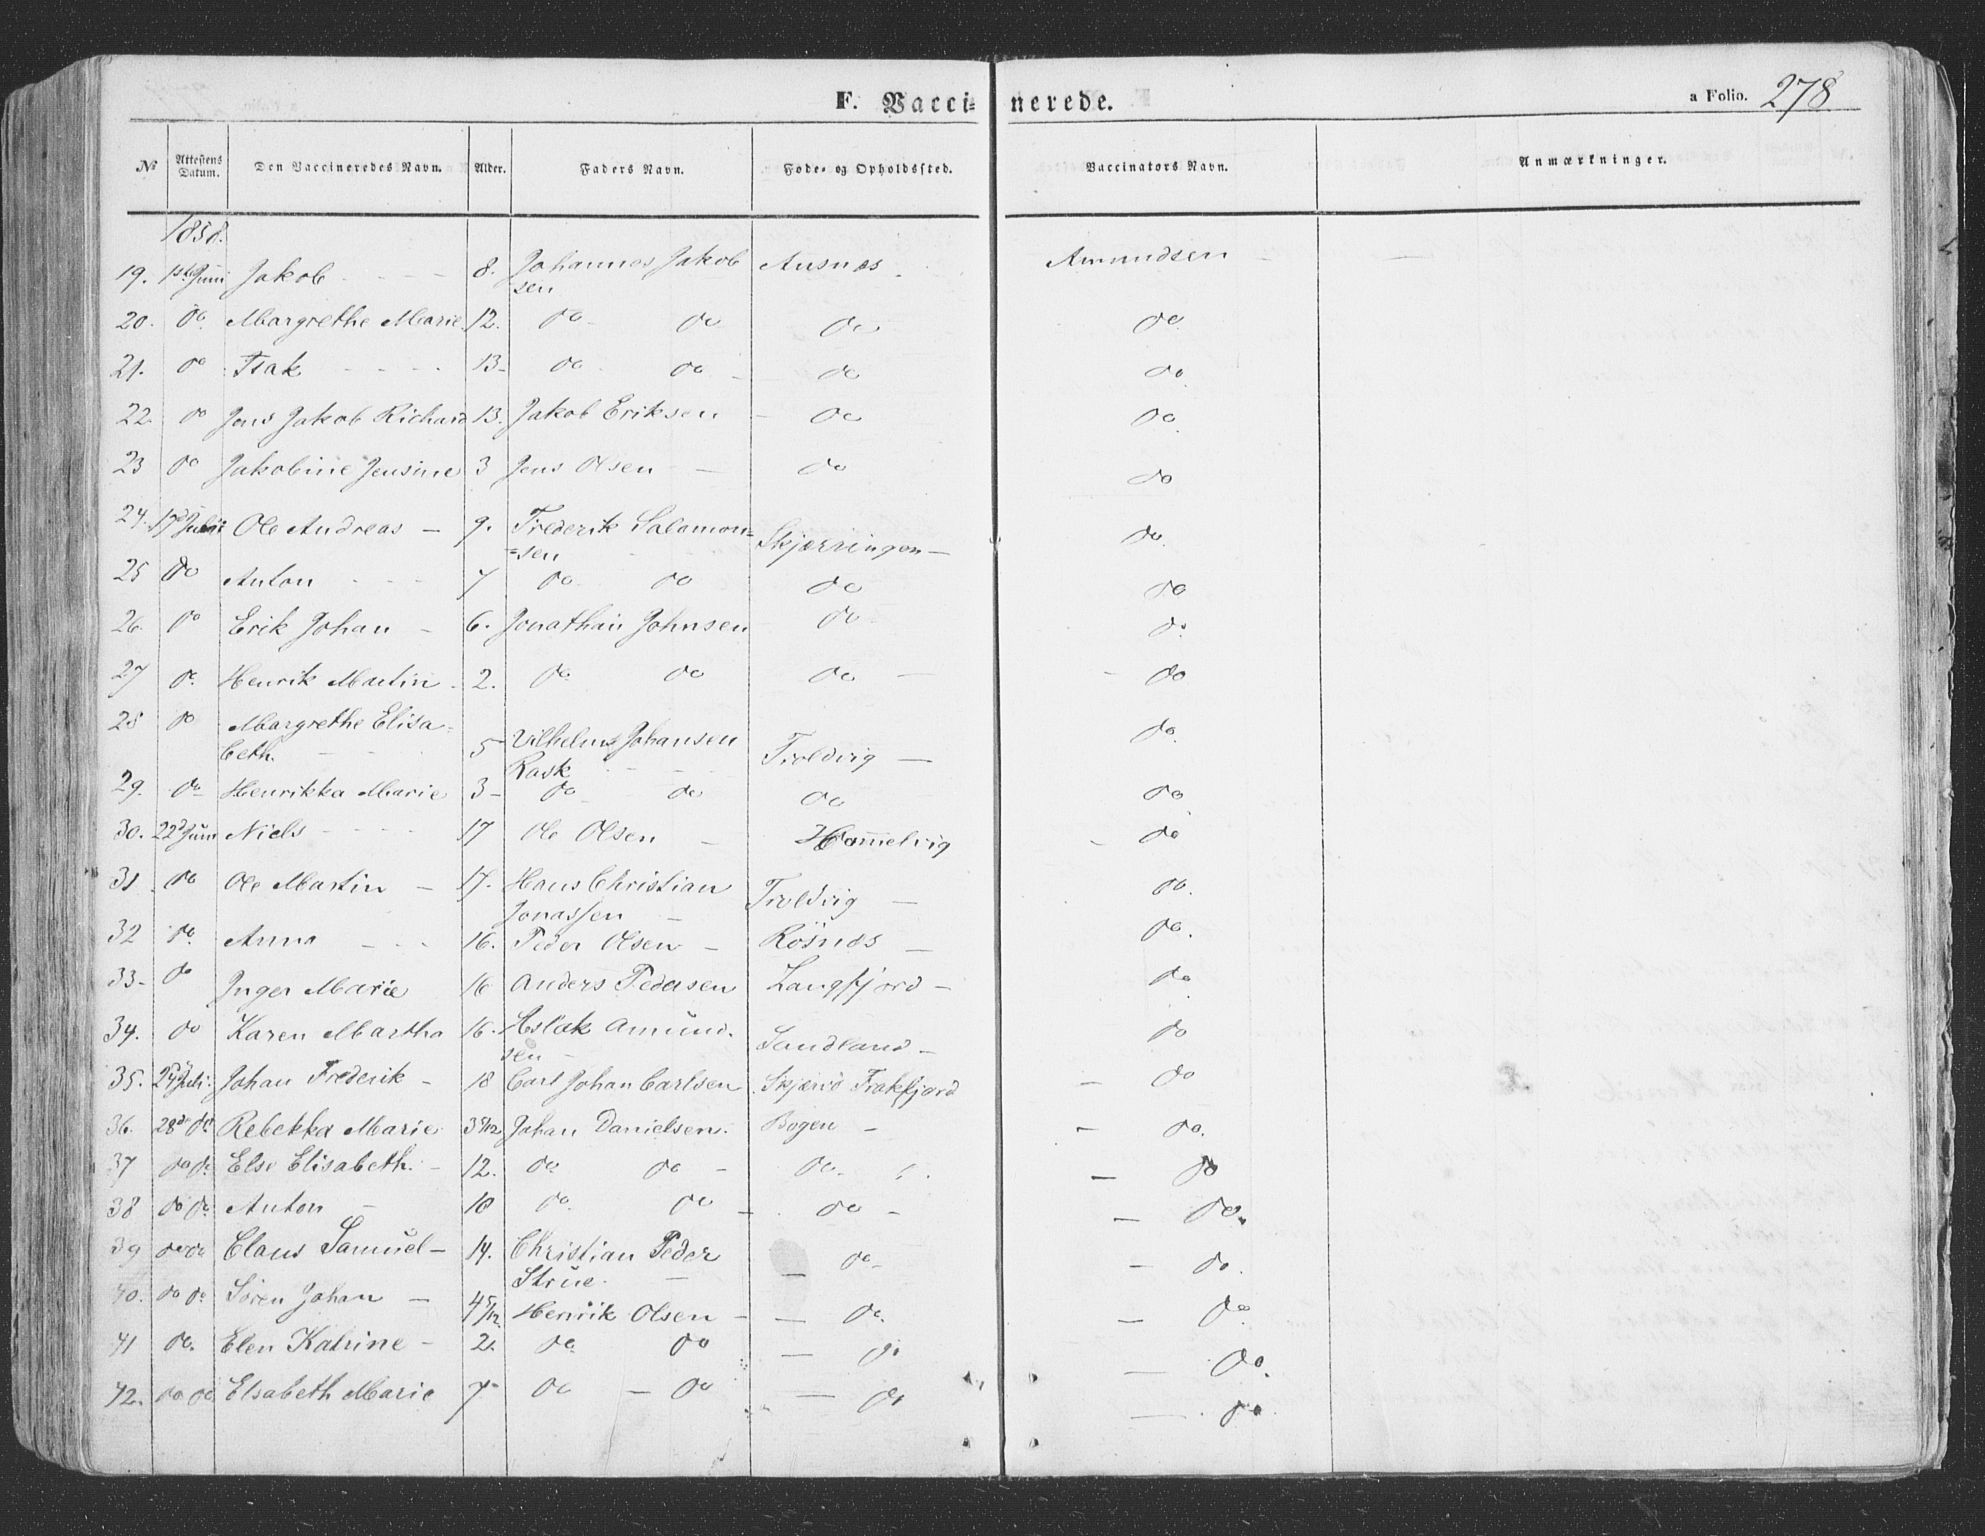 F. Vaccinerede. a Folio. 278
№ Attestens Datum. Den Vaccineredes Navn. Alder. Faders Navn. Føde- og Opholdssted. Vaccinators Navn. Anmærkninger.
1858.
19. 1ste Juni Jakob - - - 8. Johannes Jakob Ausnæs - Amundsen - -
sen
20. do Margrethe Marie 12. do do do do
21. do Isak - - - 13 - do do - do do
22. do Jens Jakob Richard 13. Jakob Eriksen - do do
23 do Jakobine Jensine 3 Jens Olsen - do do
24. 17de Ole Andreas - 9. Frederik Salamon= Skjærringen - do
=sen
25 do Anton - - - 7 do do do do
26. do Erik Johan - 6. Jonathan Johnsen do do
27 do Henrik Martin - 2. do do do - - do
28 do Margrethe Elisa- do
beth. - - 5 Vilhelms Johansen Troldvig -
Rask - - -
29. do Henrikka Marie 3 - do do do do
30. 22d Juni Niels - - - 17 Ole Olsen - Hommelvig - do
31 do Ole Martin - 17. Hans Christian Troldvig - do
Jonassen -
32 do Anna - - - 16. Peder Olsen - Røsnæs - do
33 - do Inger Marie 16 Anders Pedersen Langfjord - do
34. do Karen Martha 16. Aslak Amund- Sandland - do
sen -
35. Juli Johan Frederik - 18 Carl Johan Carlsen Skjærvø Frakfjord - do
36. 28de do Rebekka Marie 3 5/12 Johan Danielsen. Bogen - - do.
37 do do Else Elisabeth. - 12. do do - do - - do
38 do do Anton - 10 do do - do - - do.
39 do do Claus Samuel - 14. Christian Peder - do - - do.
Strue. -
40. do do Søren Johan - 4 5/12 Henrik Olsen - - do. - do
41 do. Elen Katrine - 2. do do - do - do.
42. do do Elsabeth Marie 7 - do - do - do - do